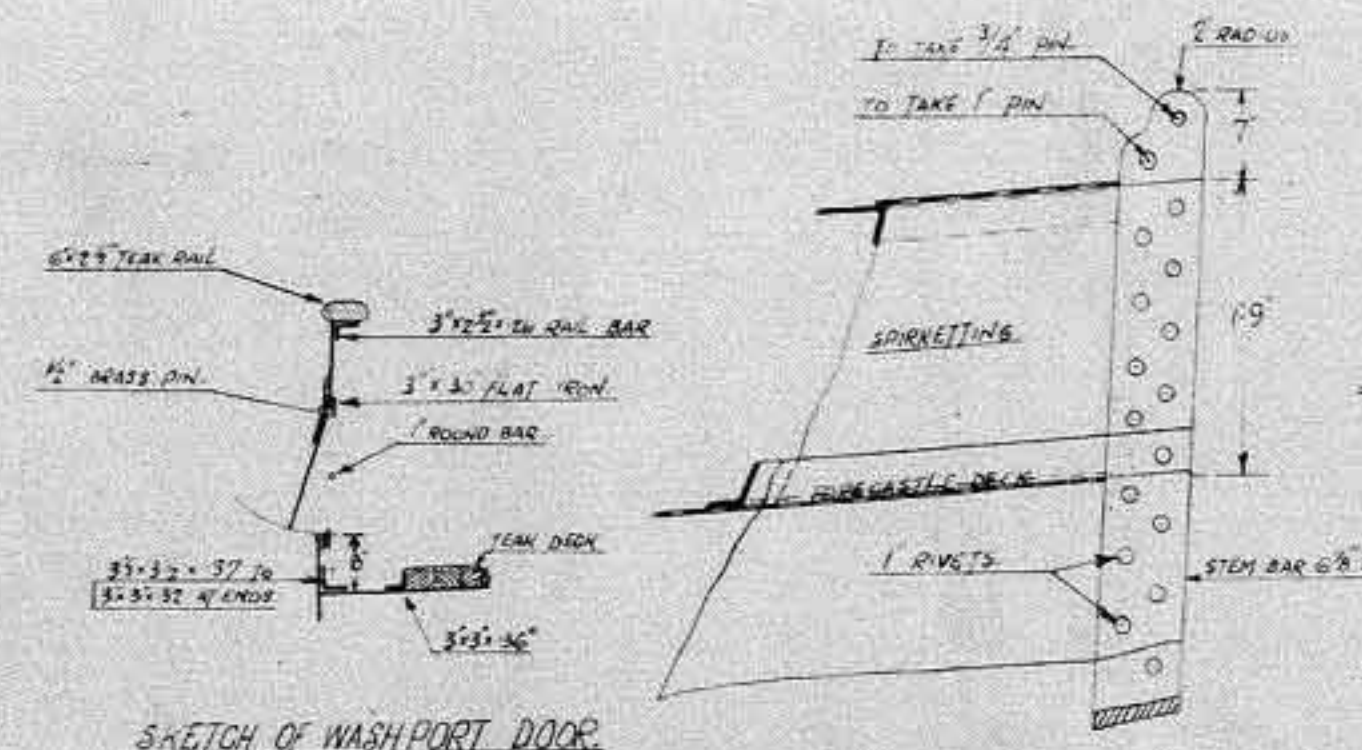 6"×2¾" TEAK RAIL
3"×2½"×.26 RAIL BAR
½" BRASS PIN.
3"×.30" FLAT IRON.
1" ROUND BAR
8"
TEAK DECK
3½×3½×.37 TO
3×3×.32 AT ENDS
3"×3"×.36"
SKETCH OF WASHPORT DOOR.
TO TAKE 3/4" PIN.
2" RADIUS
TO TAKE 1" PIN
7"
SPIRKETTING.
1'9"
FORECASTLE DECK
1" RIVETS.
STEM BAR